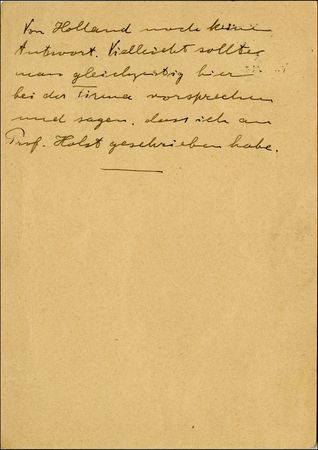 Von Holland noch keine
Antwort. Vielleicht sollte
man gleichzeitig hier
bei der Firma vorsprechen
und sagen, dass ich an
Prof. Holst geschrieben habe.